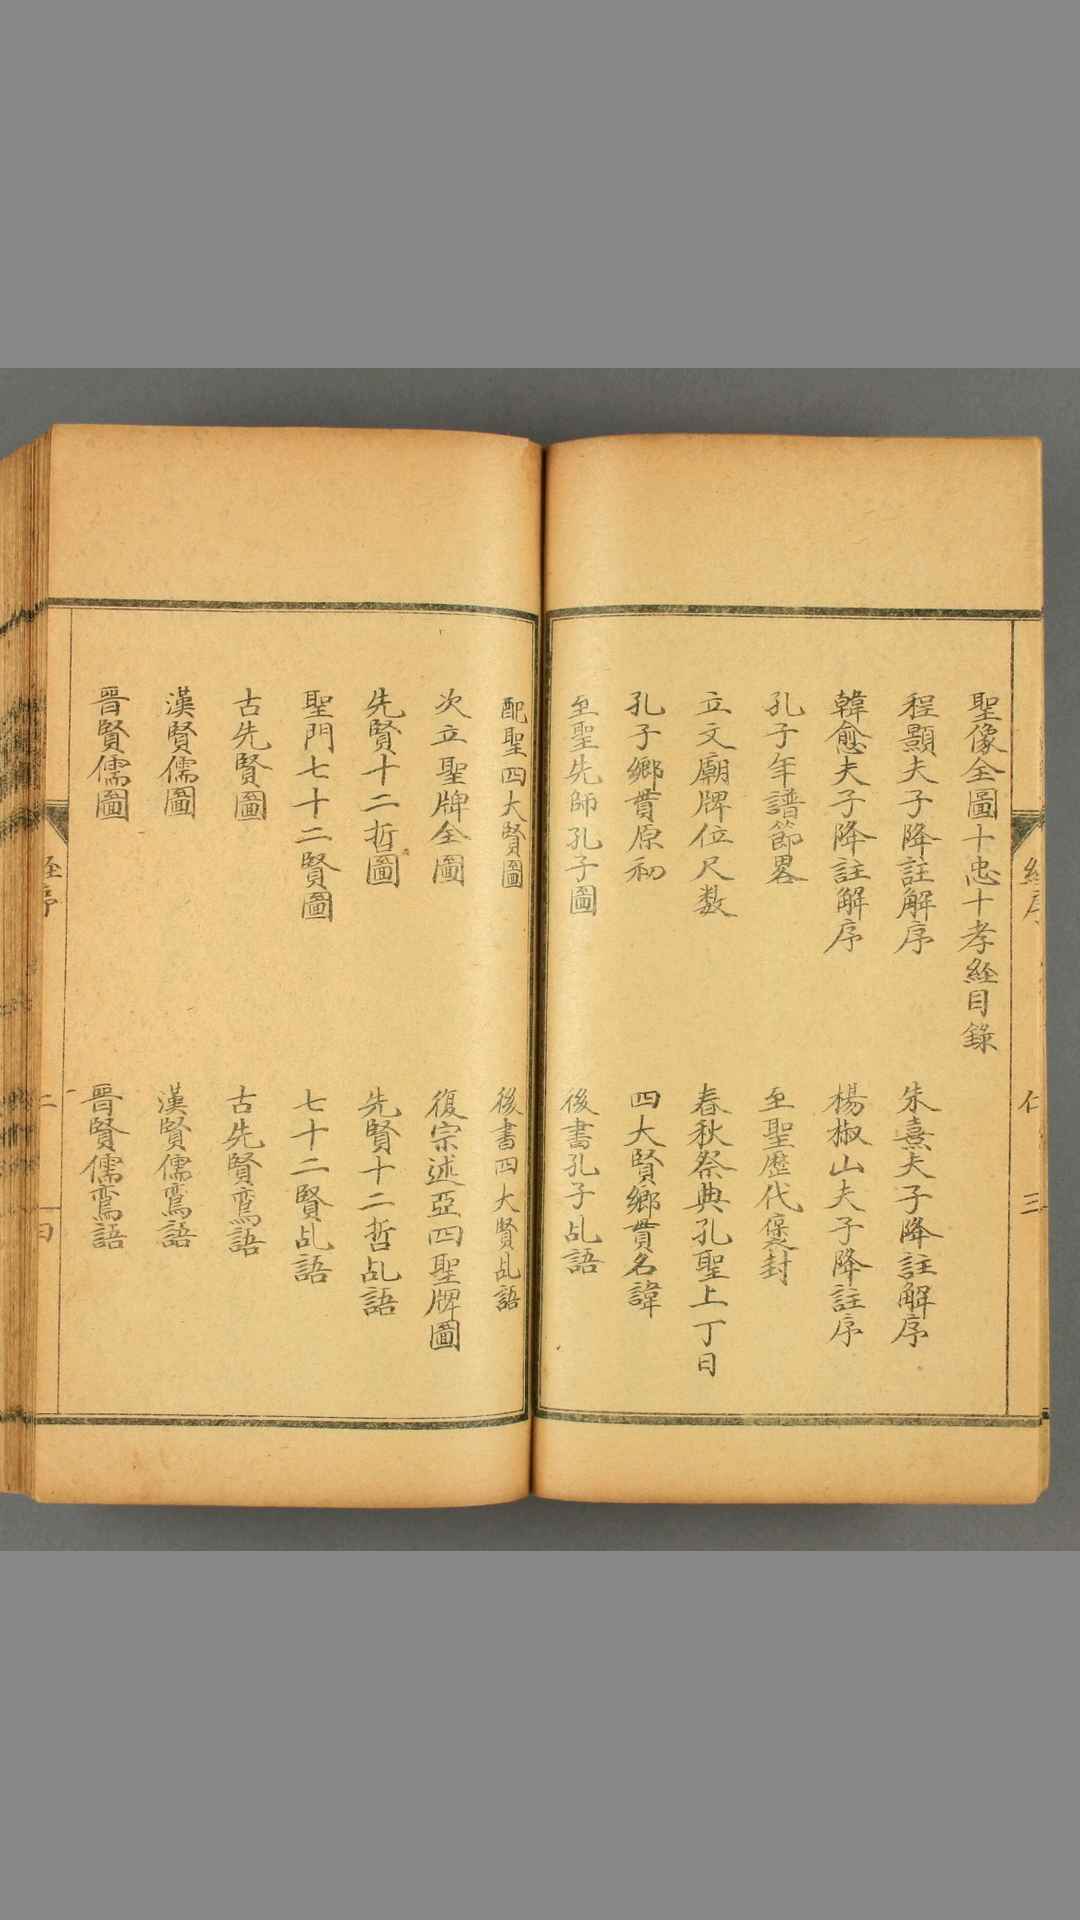 聖像全圖十忠十孝經目錄
程顥夫子降註解序 朱熹夫子降註解序
韓愈夫子降註解序 楊椒山夫子降註序
孔子年譜節畧 至聖歷代褒封
立文廟牌位尺数 春秋祭典孔聖上丁日
孔子鄉貫原初 四大賢鄉貫名諱
至聖先師孔子圖 後書孔子乩語
配聖四大賢圖 後書四大賢乩語
次立聖牌全圖 復宗述亞四聖牌圖
先賢十二哲圖 先賢十二哲乩語
聖門七十二賢圖 七十二賢乩語
古先賢圖 古先賢鸞語
漢賢儒圖 漢賢儒鸞語
晋賢儒圖 晋賢儒鸞語